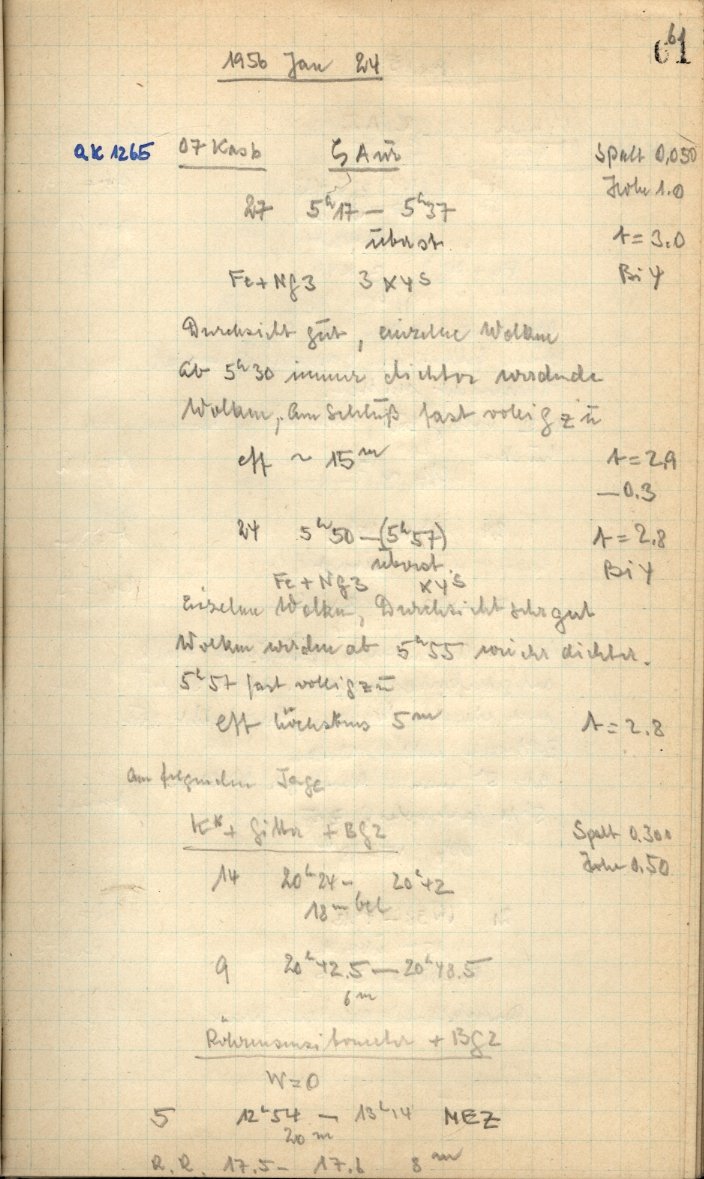 61
1956 Jan 24
QK 1265 07 Kasb ζ Aur Spalt 0,050
Höhe 1.0
27 5h17 — 5h37
überst. t = 3.0
Fe + Ng3 3 x 4s Bi 4
Durchsicht gut, einzelne Wolken
ab 5h30 immer dichter werdende
Wolken, am Schluß fast völlig zu
eff ~ 15m t = 2.9
— 0.3
24 5h50 — (5h57) t = 2.8
überst. Bi 4
Fe + Ng3 x 4s
Einzelne Wolken, Durchsicht sehr gut
Wolken werden ab 5h55 wieder dichter.
5h57 fast völlig zu
eff höchstens 5m t = 2.8
am folgenden Tage
K* + Gitter + Bg2 Spalt 0.300
Höhe 0.50
14 20h24 — 20h42
18m bel
9 20h42.5 — 20h48.5
6m
Röhrensensitometer + Bg2
W = 0
5 12h54 — 13h14 MEZ
20m
R.R. 17.5 — 17.6 8m